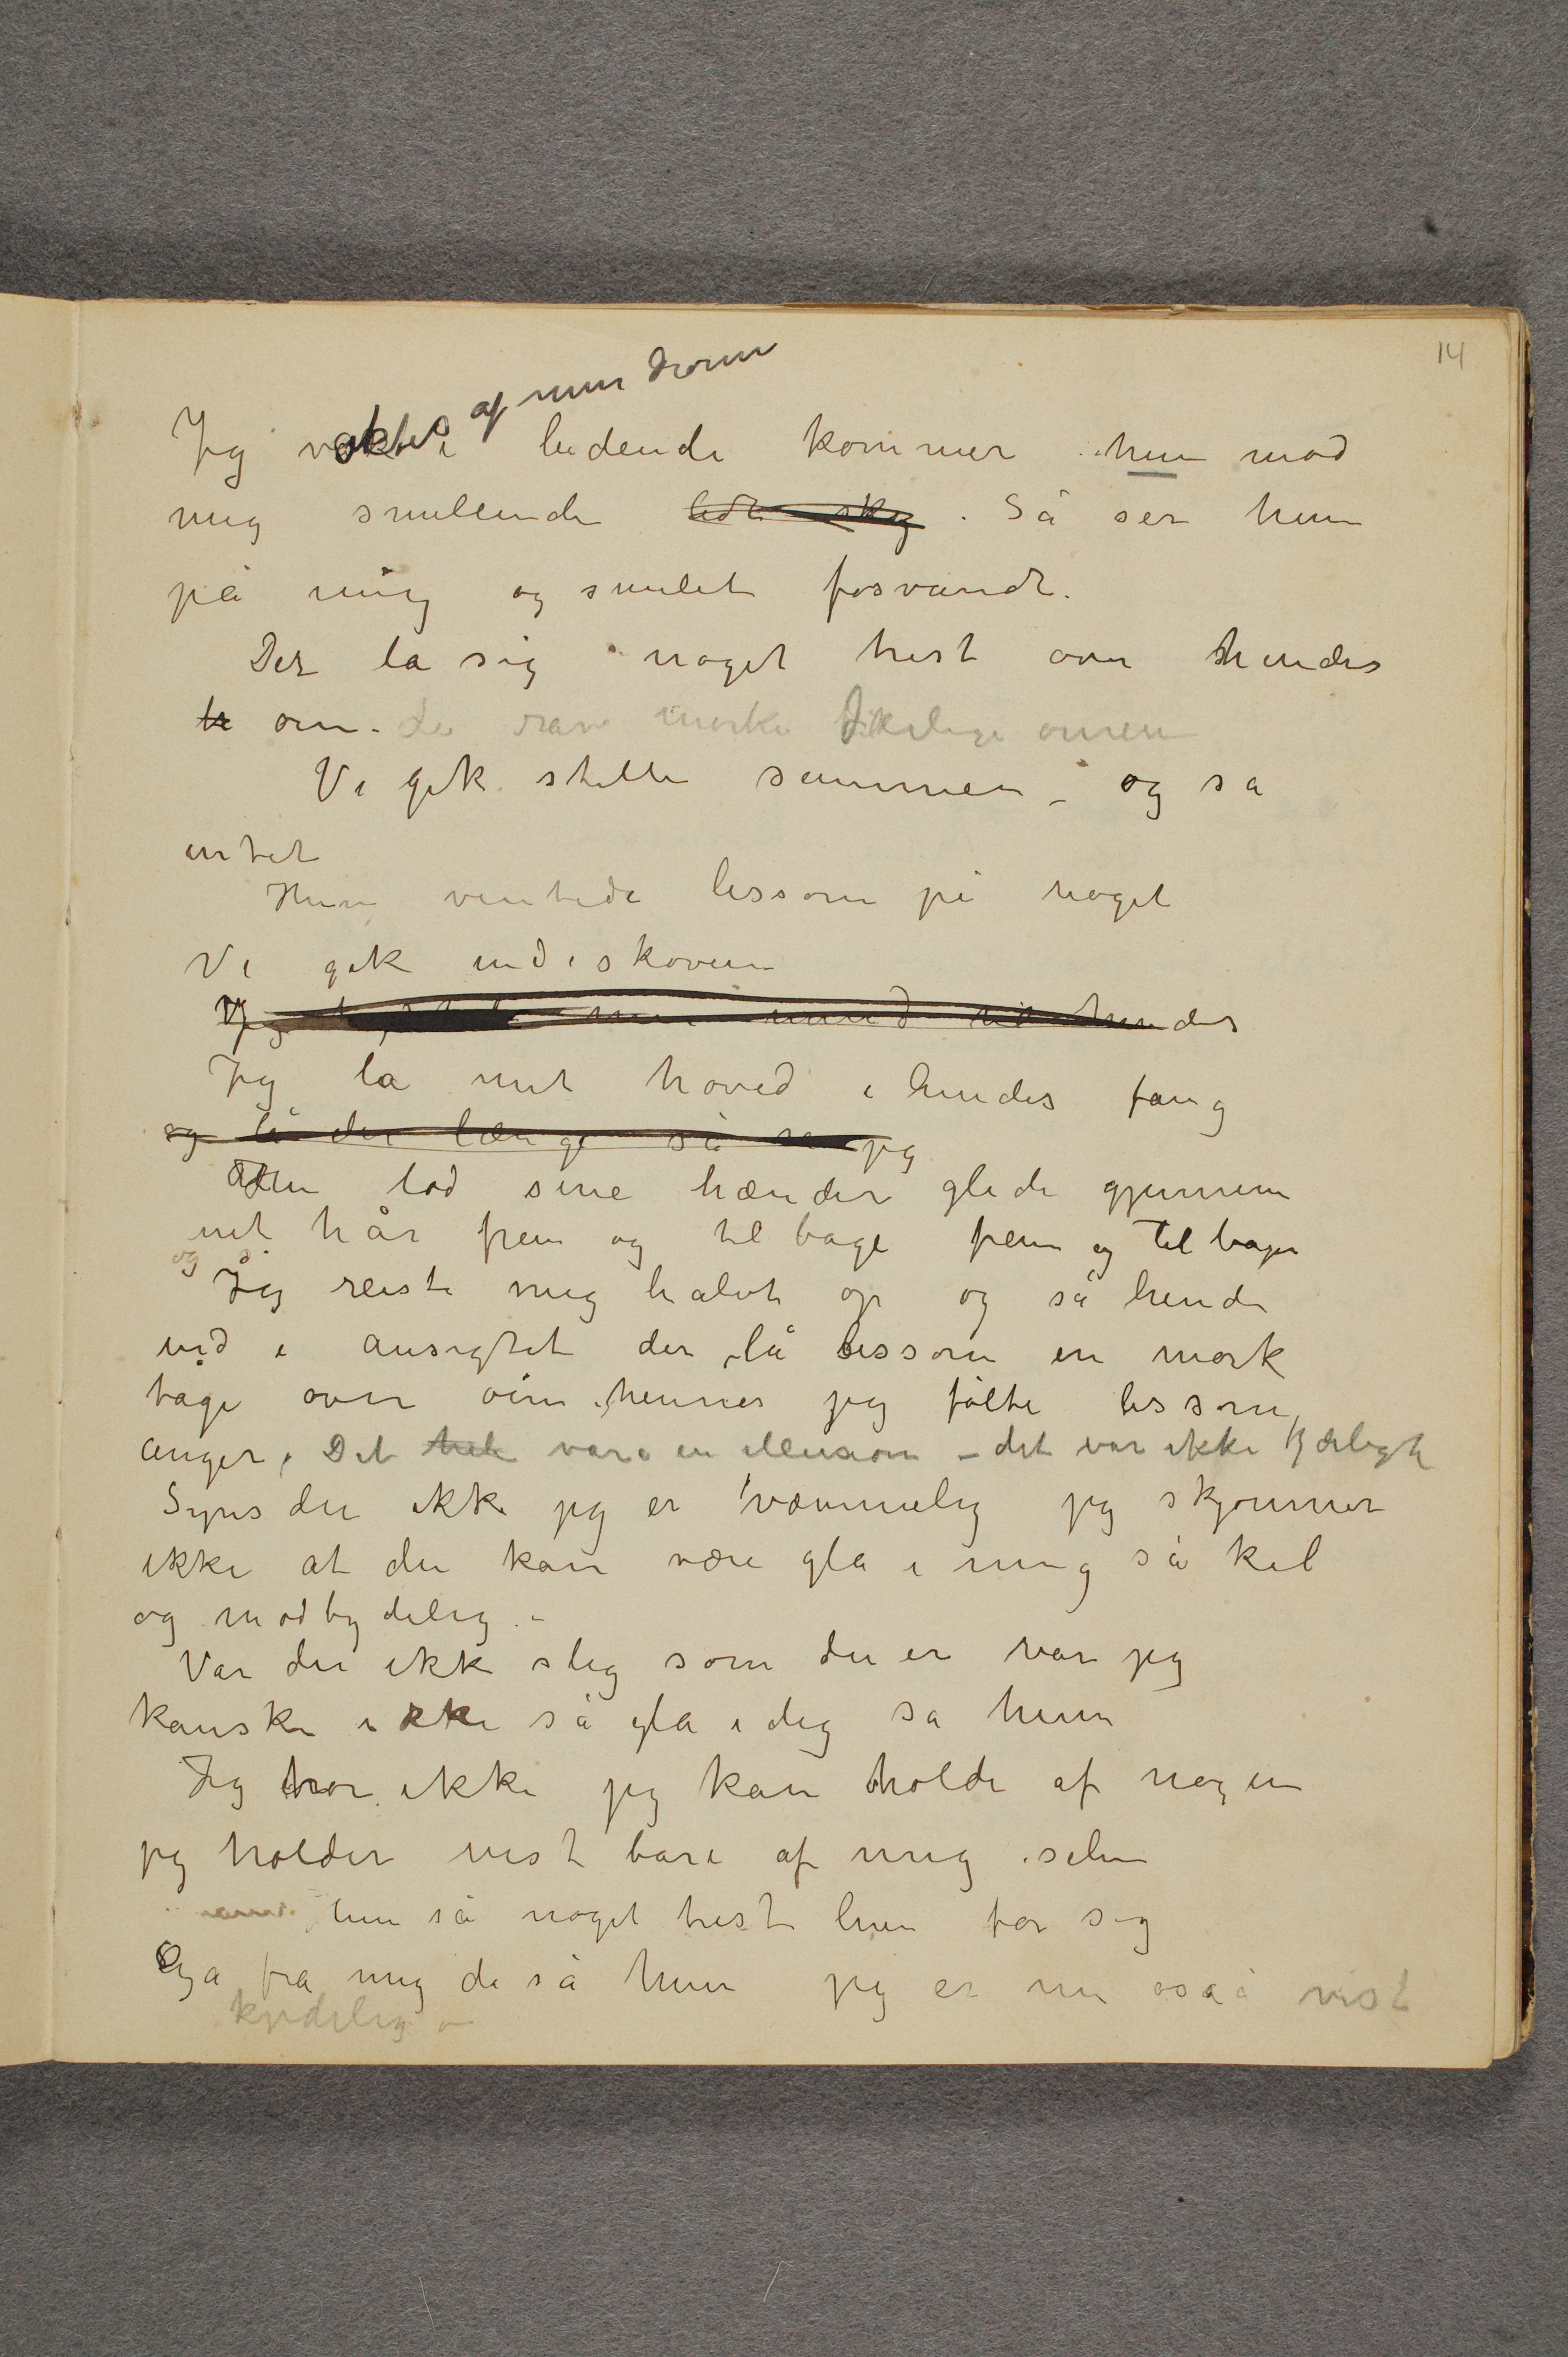 14
af min drøm
Jeg vækkes ledende kommer hun mod
mig smilende lidt sky. Så ser hun
på mig og smilet forsvandt.
Der la sig noget trist over hendes
tr øine. De rare mørke
Vi gik stille sammen – og sa
intet
Hun ventede lissom på noget
Vi gik ind i skoven
Jeg min mund til hendes
Jeg la mit hoved i hendes fang
og lå der længe så jeg
Hun lod sine hænder glide gjennem
mit hår frem og tilbage frem og tilbage
og
Jeg reiste mig halvt op og så hende
ind i ansigtet der lå lissom en mørk
tåge over øine hennes jeg følte lissom
anger. Det hele var en illusion – det var ikke kjærlighe
Synes du ikke jeg er væmmelig jeg skjønner
ikke at du kan være gla i mig så kal
og modbydelig –
Var du ikke slig som du er var jeg
kanske ikke så gla i dig sa hun
Jeg tror ikke jeg kan holde af nogen
jeg holder vist bare af mig selv
hun så noget trist hen for sig
Gå fra mig da så hun jeg er nu også vist
kjedelig –